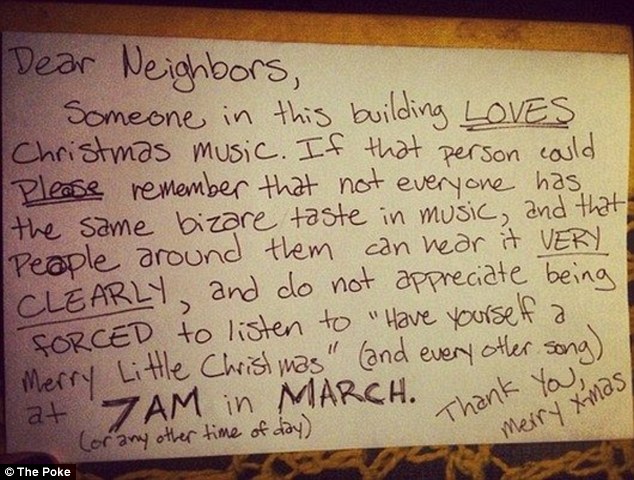 Dear Neighbors,
Someone in this building LOVES
Christmas music. If that person could
Please remember that not everyone has
the same bizare taste in music, and that
People around them can hear it VERY
CLEARLY, and do not appreciate being
FORCED to listen to "Have yourself a
Merry Little Christmas" (and every other song)
at 7AM in MARCH.
(or any other time of day)
Thank You,
Merry X-mas
© The Poke